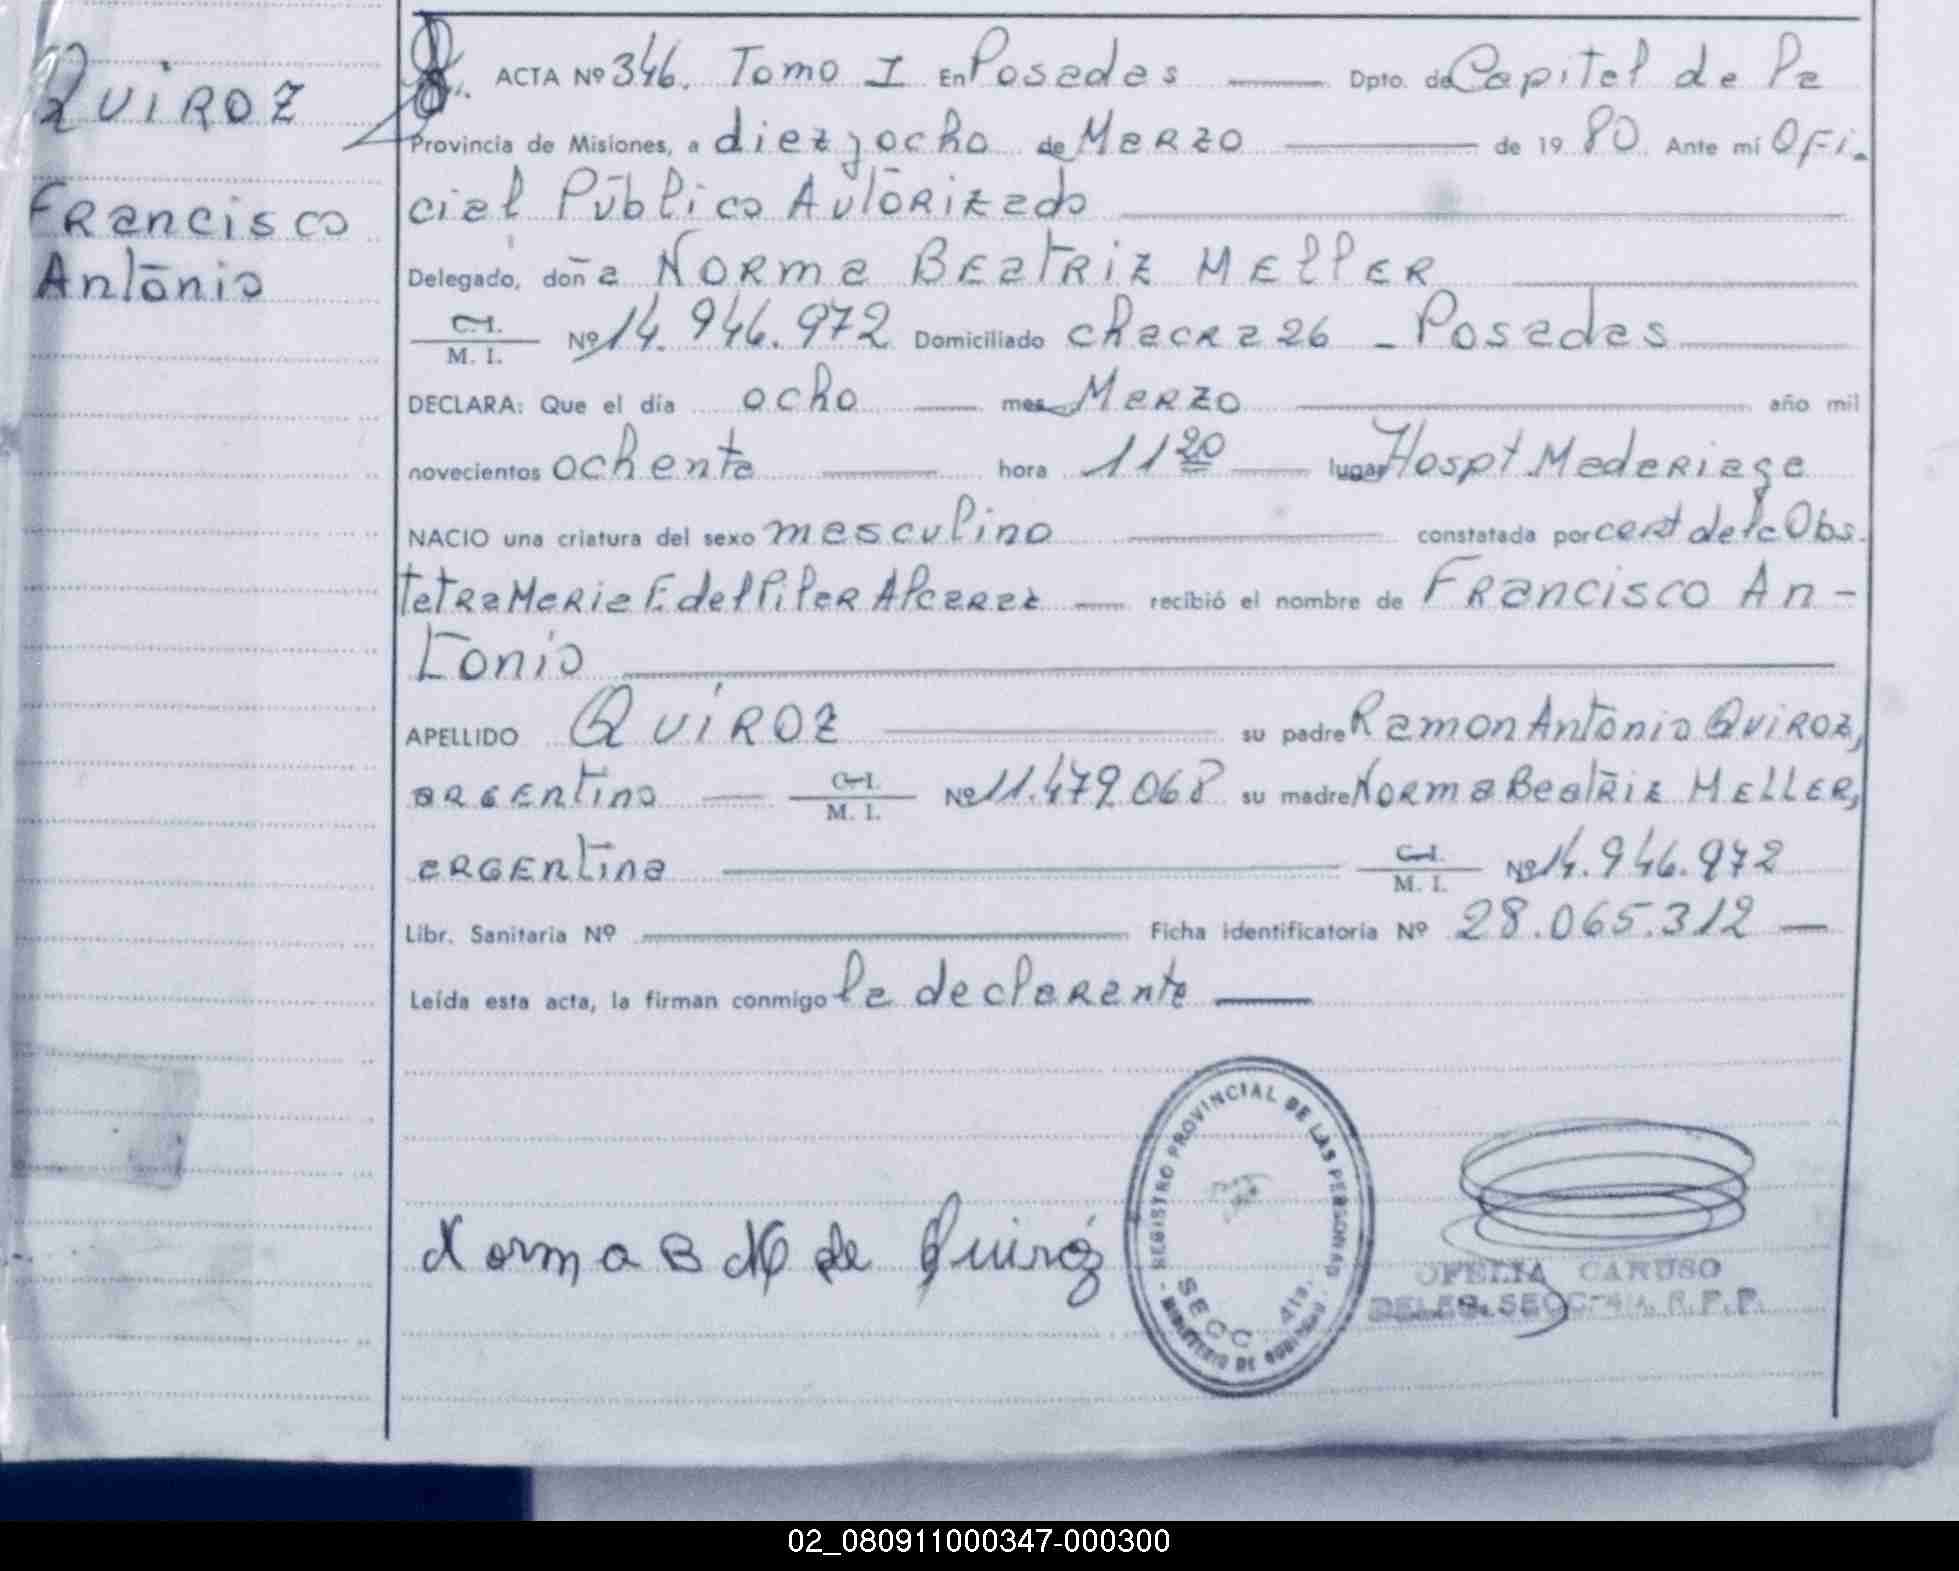 QUIROZ
Francisco
Antonio
ACTA Nº 346. Tomo I En Posadas Dpto. de Capital de la
Provincia de Misiones, a diez y ocho de Marzo de 19 80 Ante mí Ofi-
cial Público Autorizado
Delegado, doña Norma Beatriz Meller
C.I.
M. I. Nº 14.946.972 Domiciliado chacra 26 - Posadas
DECLARA: Que el día ocho mes Marzo año mil
novecientos ochenta hora 11 20 lugar Hospt. Madariaga
NACIO una criatura del sexo masculino constatada por cert de la Obs.
tetra Maria E. del Pilar Alcaraz recibió el nombre de Francisco An-
tonio
APELLIDO QUIROZ su padre Ramon Antonio QUIROZ,
argentino C.I. M. I. Nº 11.479.068 su madre Norma Beatriz MELLER,
argentina C.I. M. I. Nº 14.946.972
Libr. Sanitaria Nº Ficha identificatoria Nº 28.065.312
Leída esta acta, la firman conmigo la declarante
Norma B M de Quiroz
REGISTRO PROVINCIAL DE LAS PERSONAS
SECC. 4ta.
MINISTERIO DE GOBIERNO
OFELIA CARUSO
DELEG. SECC. 4ta. R.P.P.
02_080911000347-000300